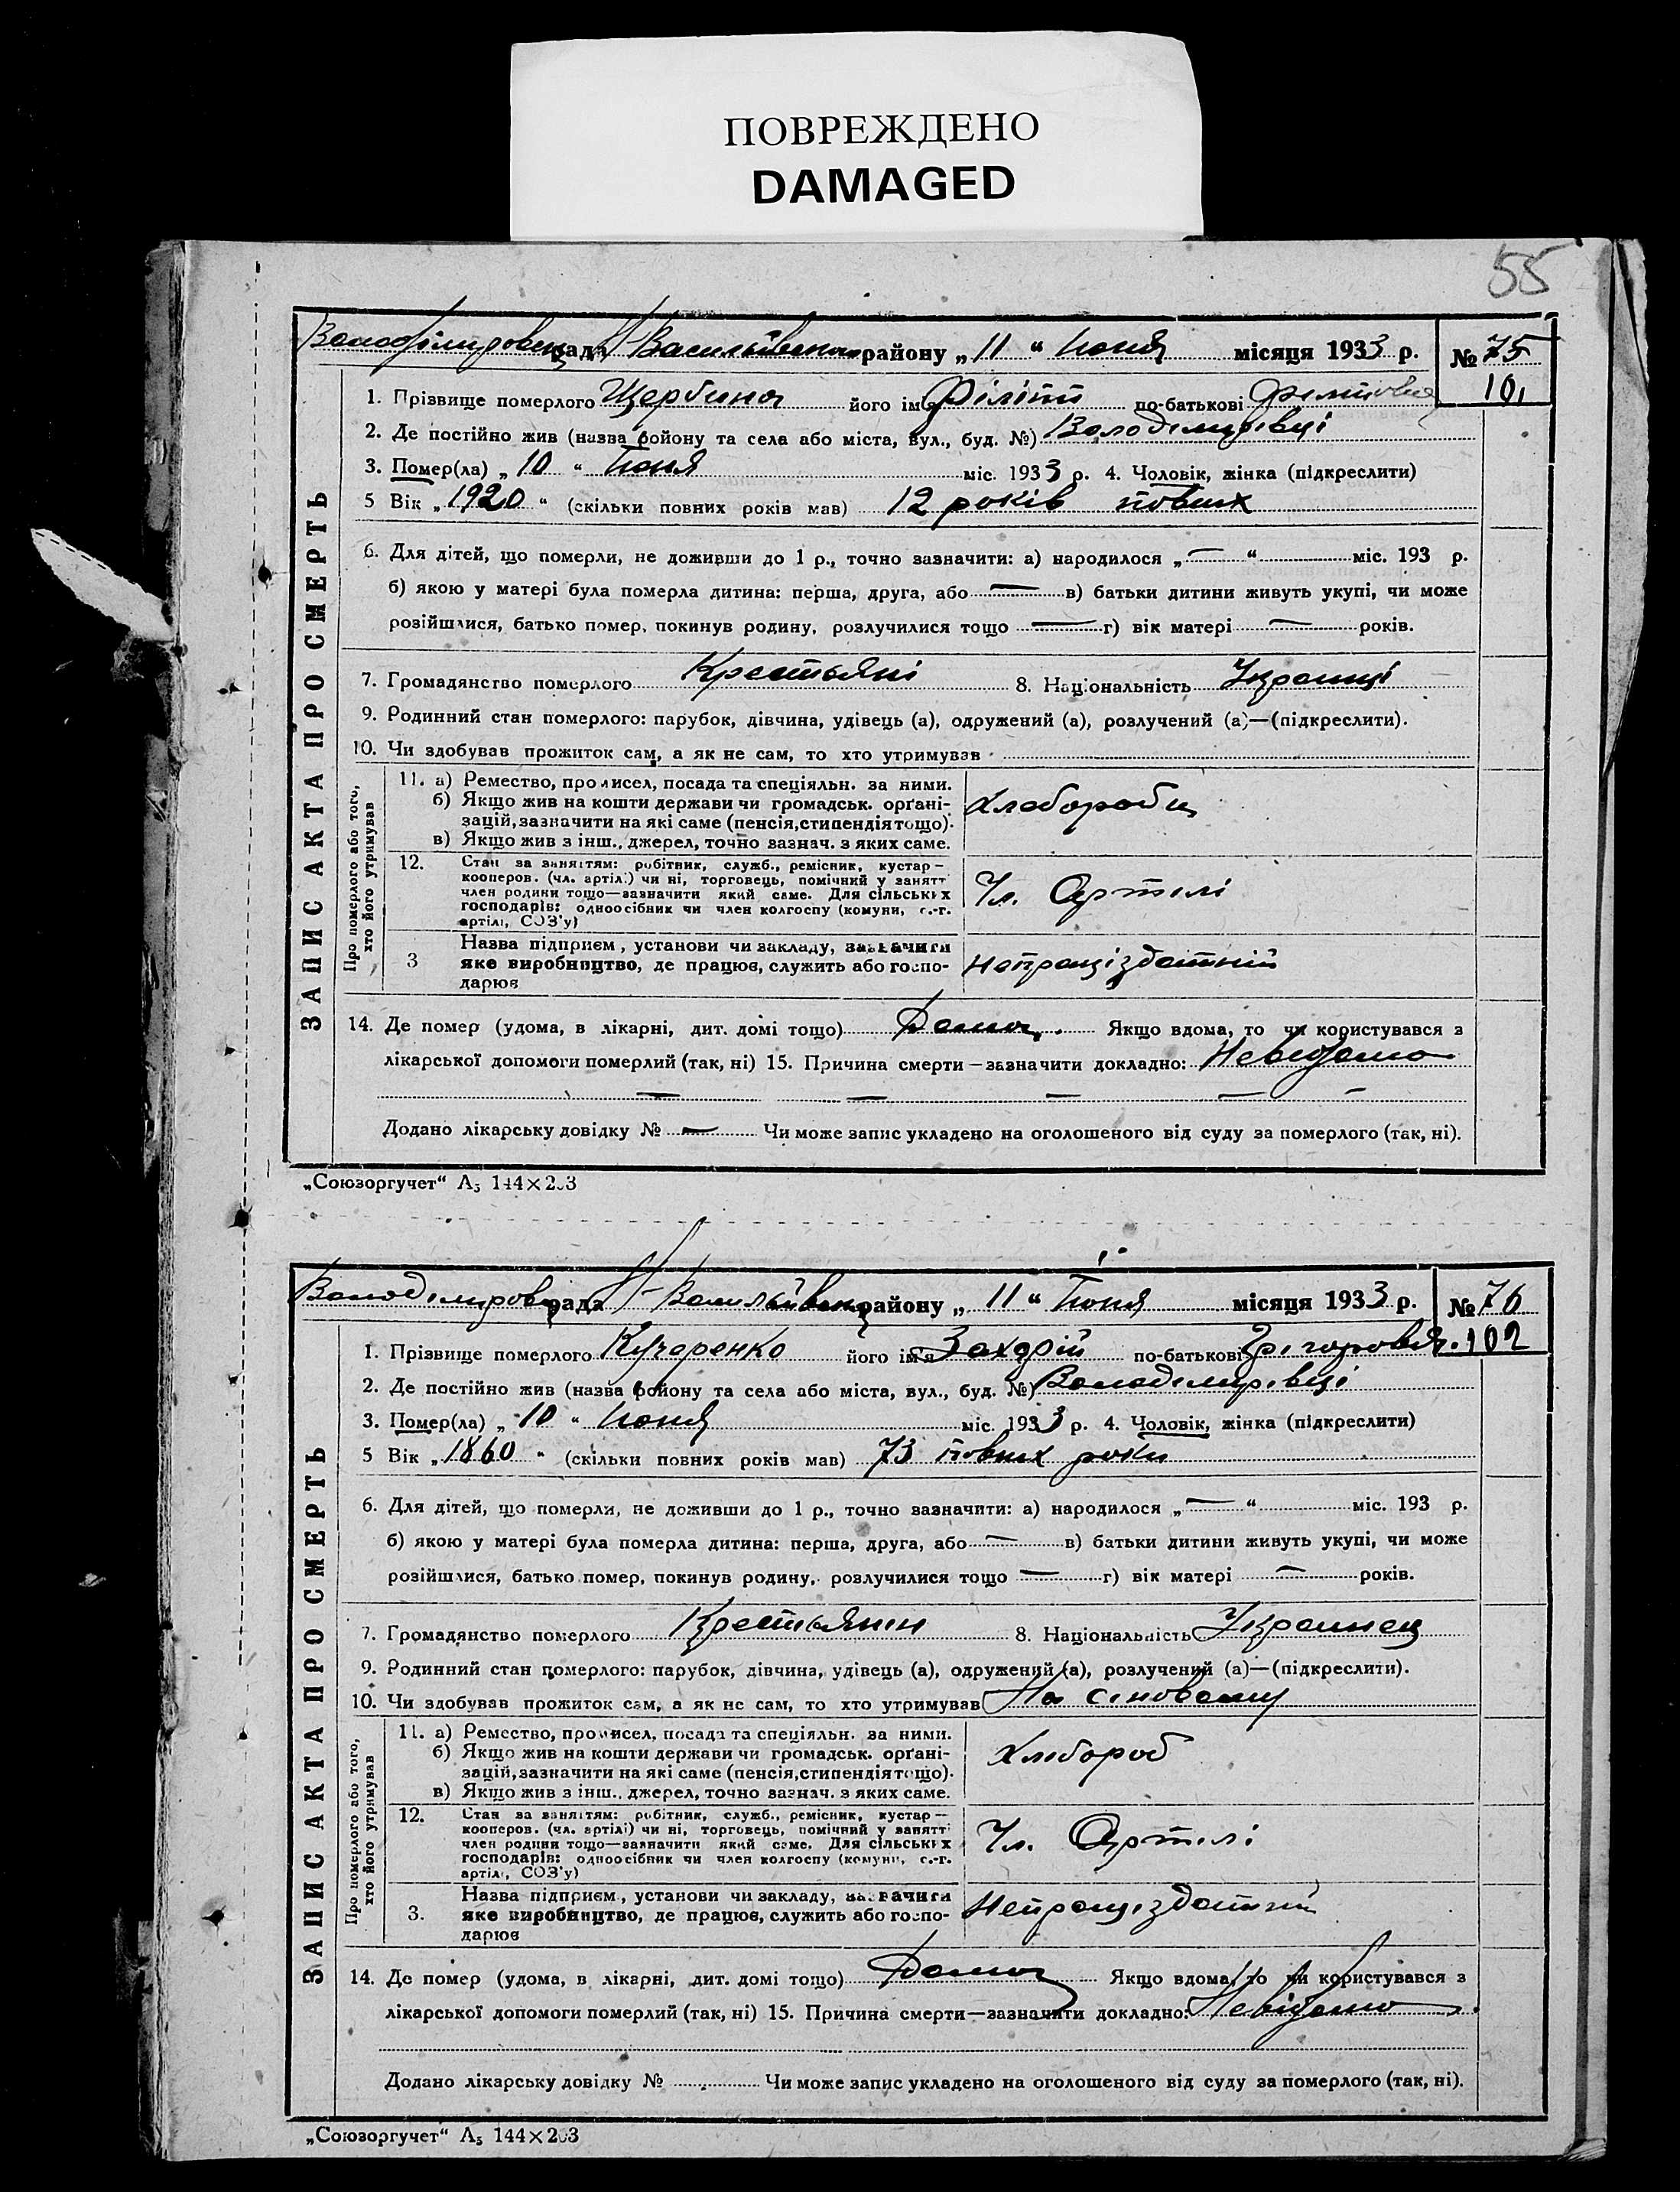 ПОВРЕЖДЕНО
DAMAGED
55
Володімировец рада Н Васильївского району „ 11 “ Июня місяця 1933 р. № 75
101
ЗАПИС АКТА ПРО СМЕРТЬ
1. Прізвище померлого Щербина його ім'я Філіпп по-батькові
2. Де постійно жив (назва району та села або міста, вул., буд. №) Володімирівці
3. Помер(ла) „ 10 “ Іюня міс. 1933 р. 4. Чоловік, жінка (підкреслити)
5 Вік „ 1920 “ (скільки повних років мав) 12 років повних
6. Для дітей, що померли, не доживши до 1 р., точно зазначити: а) народилося „ — “ міс. 193 р.
б) якою у матері була померла дитина: перша, друга, або — в) батьки дитини живуть укупі, чи може
розійшлися, батько помер, покинув родину, розлучилися тощо — г) вік матері — років.
7. Громадянство померлого Крестьяні 8. Національність Українці
9. Родинний стан померлого: парубок, дівчина, удівець (а), одружений (а), розлучений (а)—(підкреслити).
10. Чи здобував прожиток сам, а як не сам, то хто утримував
Про померлого або того, хто його утримував
11. а) Ремество, промисел, посада та спеціяльн. за ними.
б) Якщо жив на кошти держави чи громадськ. орґані-
зацій, зазначити на які саме (пенсія, стипендія тощо).
в) Якщо жив з інш., джерел, точно зазнач. з яких саме.
Хлебороби
12. Стан за заняттям: робітник, служб., ремісник, кустар—
кооперов. (чл. артілі) чи ні, торговець, помічний у занятт
член родини тощо—зазначити який саме. Для сільських
господарів: одноосібник чи член колгоспу (комуни, с.-г.
артілі, СОЗ'у)
Чл. Артілі
3 Назва підприєм, установи чи закладу, зазначити
яке виробництво, де працює, служить або госпо-
дарює
Непраціздатній
14. Де помер (удома, в лікарні, дит. домі тощо) Дома. Якщо вдома, то чи користувався з
лікарської допомоги померлий (так, ні) 15. Причина смерти—зазначити докладно: Неведомо
— — — — —
Додано лікарську довідку № — Чи може запис укладено на оголошеного від суду за померлого (так, ні).
„Союзоргучет“ А5 144×203
Володімировец рада Н-Васильївского району „ 11 “ Іюня місяця 1933 р. № 76
102
ЗАПИС АКТА ПРО СМЕРТЬ
1. Прізвище померлого Кучеренко його ім'я Захарій по-батькові Грігоровіч
2. Де постійно жив (назва району та села або міста, вул., буд. №) Володімирівці
3. Помер(ла) „ 10 “ Июня міс. 1933 р. 4. Чоловік, жінка (підкреслити)
5 Вік „ 1860 “ (скільки повних років мав) 73 повних роки
6. Для дітей, що померли, не доживши до 1 р., точно зазначити: а) народилося „ — “ міс. 193 р.
б) якою у матері була померла дитина: перша, друга, або — в) батьки дитини живуть укупі, чи може
розійшлися, батько помер, покинув родину, розлучилися тощо — г) вік матері — років.
7. Громадянство померлого Крестьянин 8. Національність Украинец
9. Родинний стан померлого: парубок, дівчина, удівець (а), одружений (а), розлучений (а)—(підкреслити).
10. Чи здобував прожиток сам, а як не сам, то хто утримував На
Про померлого або того, хто його утримував
11. а) Ремество, промисел, посада та спеціяльн. за ними.
б) Якщо жив на кошти держави чи громадськ. орґані-
зацій, зазначити на які саме (пенсія, стипендія тощо).
в) Якщо жив з інш., джерел, точно зазнач. з яких саме.
Хлібороб
12. Стан за заняттям: робітник, служб., ремісник, кустар—
кооперов. (чл. артілі) чи ні, торговець, помічний у занятт
член родини тощо—зазначити який саме. Для сільських
господарів: одноосібник чи член колгоспу (комуни, с.-г.
артілі, СОЗ'у)
Чл. Артілі
3. Назва підприєм, установи чи закладу, зазначити
яке виробництво, де працює, служить або госпо-
дарює
Непраціздатній
14. Де помер (удома, в лікарні, дит. домі тощо) Дома Якщо вдома, то чи користувався з
лікарської допомоги померлий (так, ні) 15. Причина смерти—зазначити докладно: Невідомо
Додано лікарську довідку № Чи може запис укладено на оголошеного від суду за померлого (так, ні).
„Союзоргучет“ А5 144×203